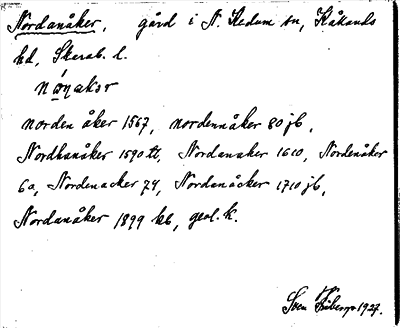 Nordanåker, gård i N. Kedum sn, Kåkinds
hd, Skarab. l.
nó̱ṇakər
norden åker 1567, nordennåker 80 jb,
Nordhanåker 1590 tl, Nordanaker 1610, Nordenåker
60, Nordenacker 74, Nordanåcker 1710 jb,
Nordanåker 1899 kb, geol. k.
Sven 1927.